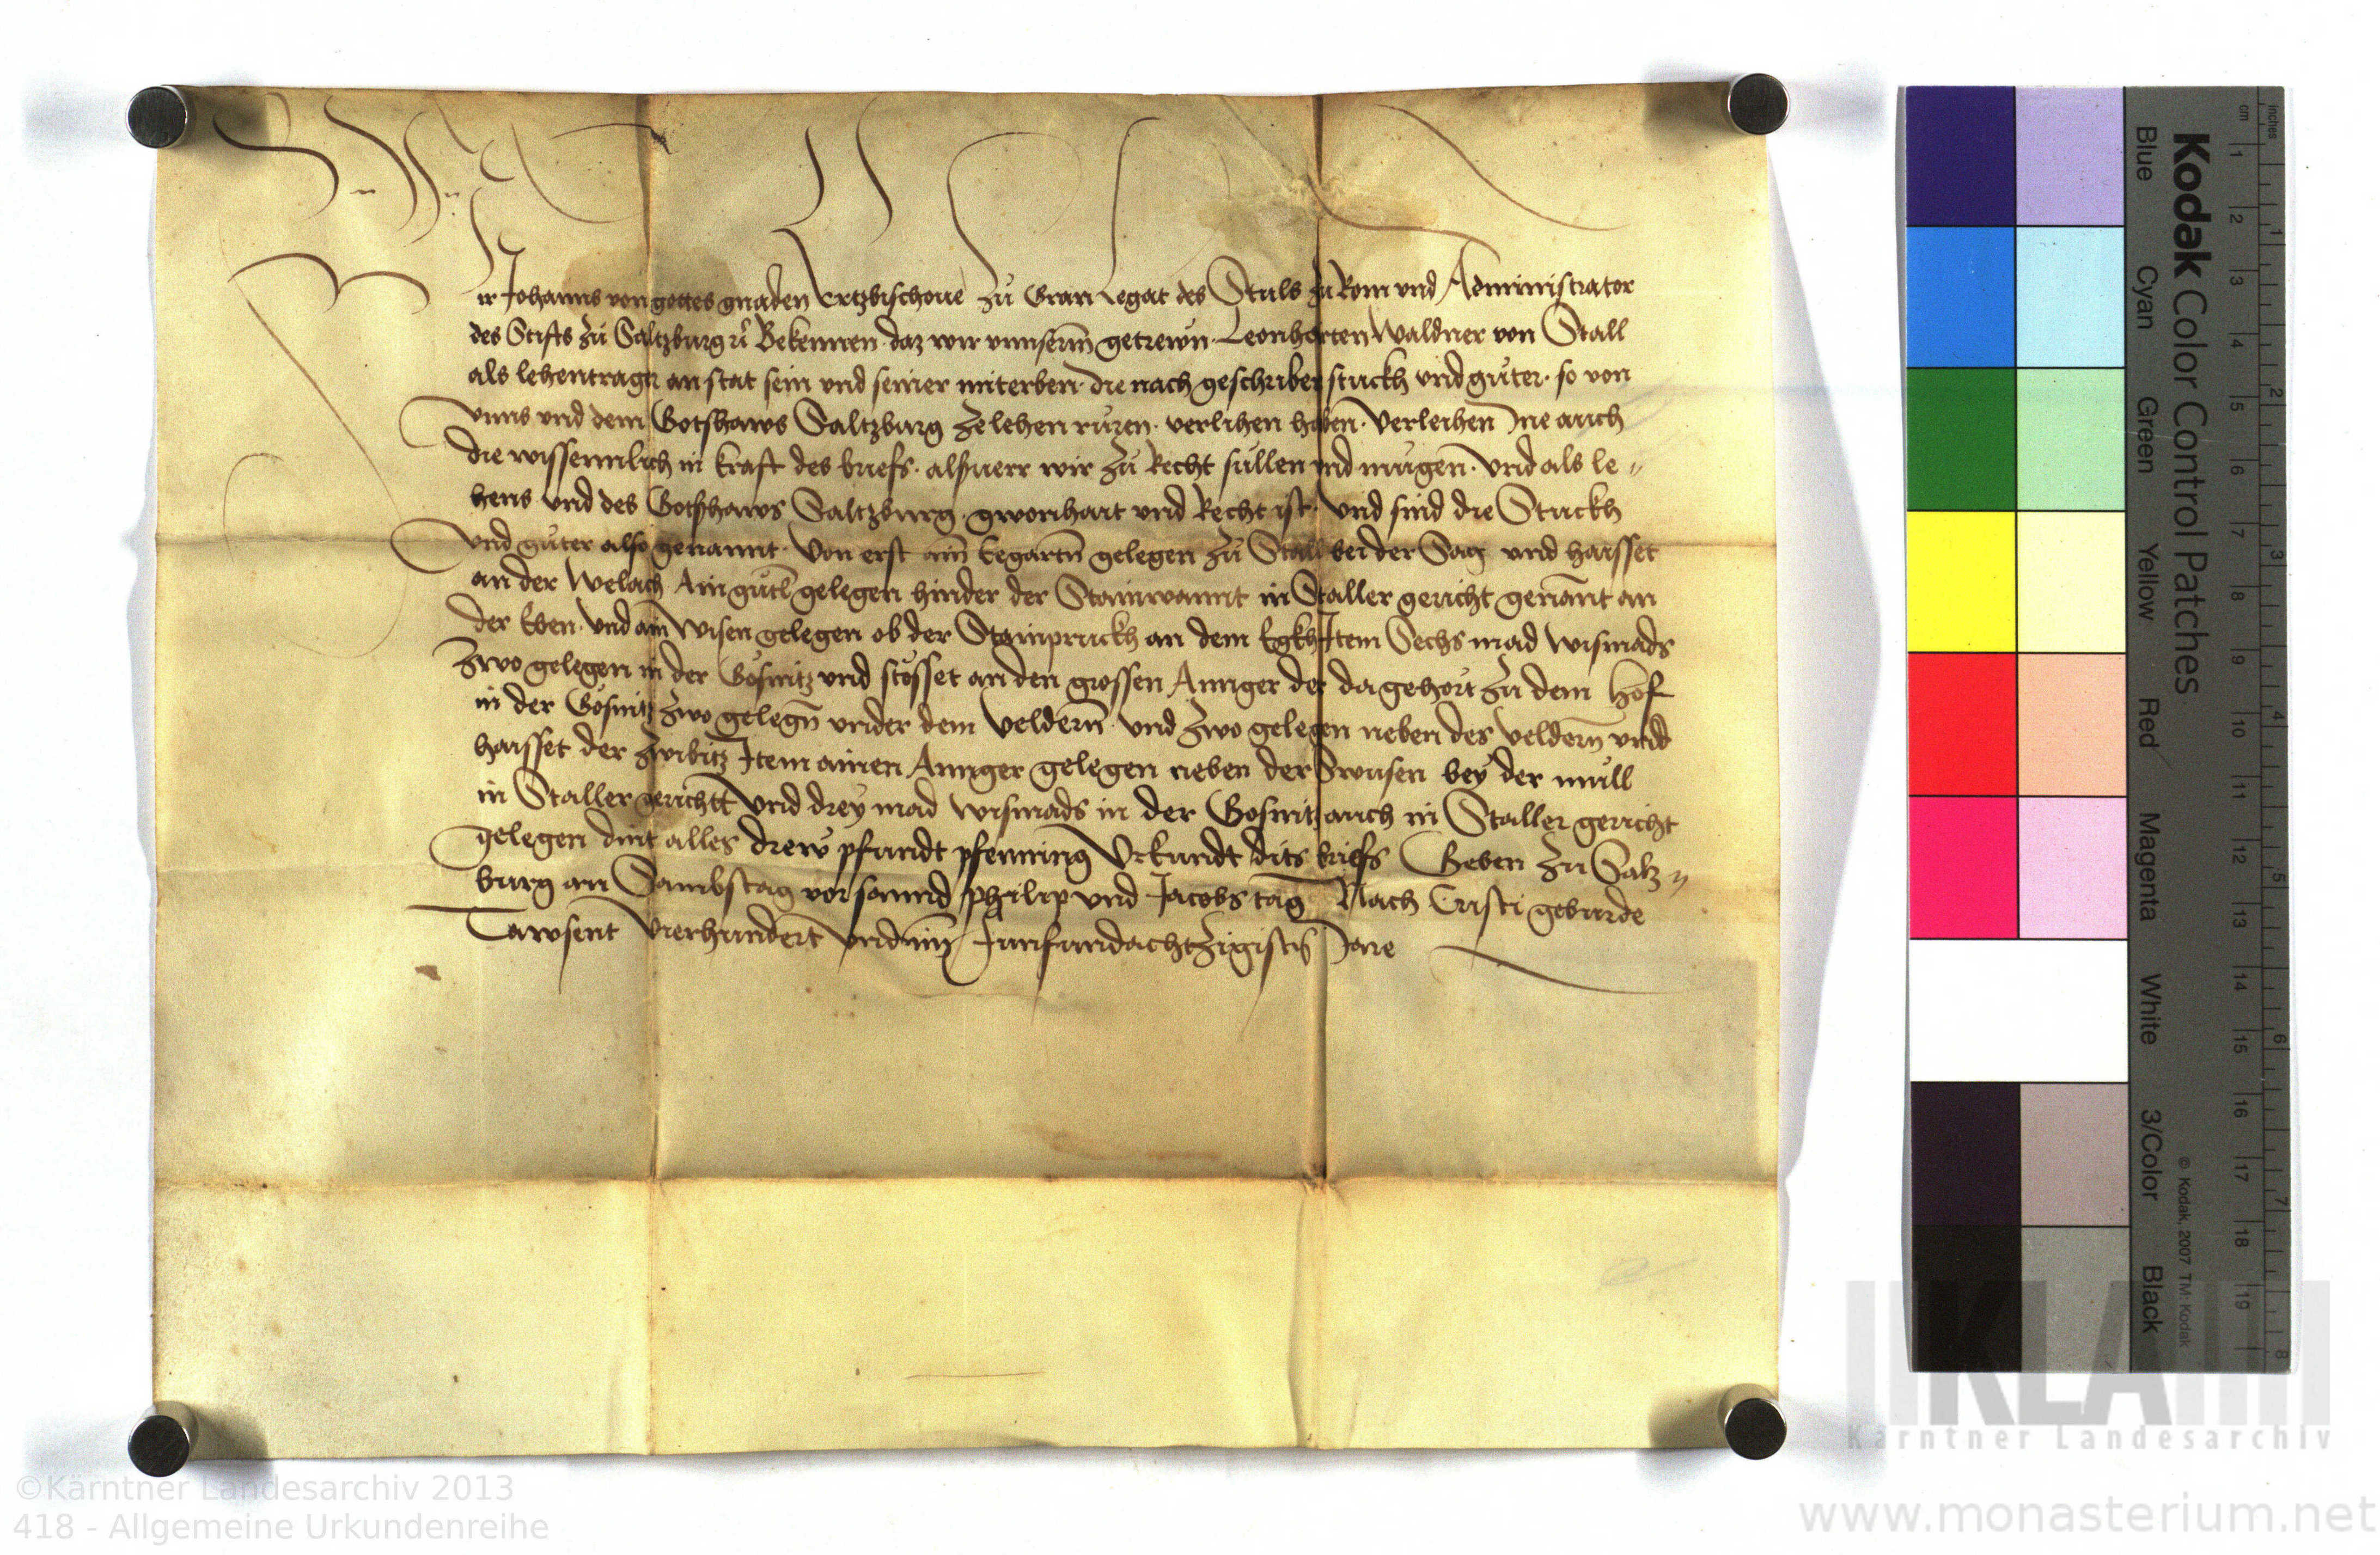 Wir Johanns von gottes gnaden Ertzbischoue zu Gran Legat des Stuls zu Rom vnd Administrator
des Stifts zu Saltzburg Bekennen. daz wir vnnserm getrewn. Leonharten Waldner von Stall
als lehentrager an stat sein vnd seiner miterben. die nach geschriben stuckh vnd guter. so von
vnns vnd dem Gotshaws Saltzburg ze lehen ruren. verlihen haben. Verleihen Ine auch
die wissenntlich in kraft des briefs. was wir zu Recht sullen vnd mugen. vnd als le〃
hens vnd des Gotshaws Saltzburg. gwonhait vnd Recht ist. Vnd sind die Stuckh
vnd guter also genannt. Von erst ain Eegartn gelegen zu Stall bei der Sag vnd haisset
an der Welach Ain gutl gelegen hinder der Stainwannt in Staller gericht genant an
der Eben. vnd ain Wisen gelegen ob der Stainpruckh an dem Egkh Item Sechs mad wismads
Zwo gelegen in der Gosnitz vnd stosset an den grossen Annger der da gehort zu dem hof
in der Gosnitz Zwo gelegn vnder dem veldern. vnd Zwo gelegen neben des veldern vnd
haisset der Zwibitz Item ainen Annger gelegen neben der bey der mull
in Staller gerichtt Vnd drey mad wismads in der Gosnitz auch in Staller gericht
gelegen dint alles drew pfundt pfenning Vrkundt dits briefs Geben zu Salz〃
burg an Sambstag vor sannd Philip vnd Jacobs tag Nach Cristi geburde
Tawsent Vierhundert vnd im Funfundachtzigisten Jare
Kodak Color Control Patches
Blue Cyan Green Yellow Red Magenta White 3/Color Black
© Kodak, 2007 TM: Kodak
inches 1 2 3 4 5 6 7 8
cm 1 2 3 4 5 6 7 8 9 10 11 12 13 14 15 16 17 18 19
KLA
Kärntner Landesarchiv
©Kärntner Landesarchiv 2013
418 - Allgemeine Urkundenreihe
www.monasterium.net